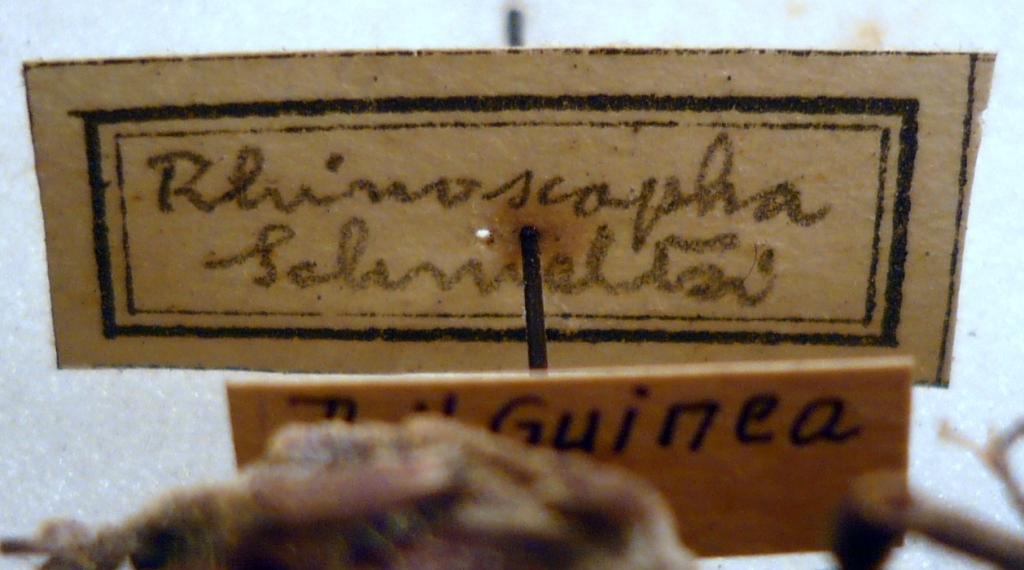 Rhinoscapha
Schmeltzi
Guinea